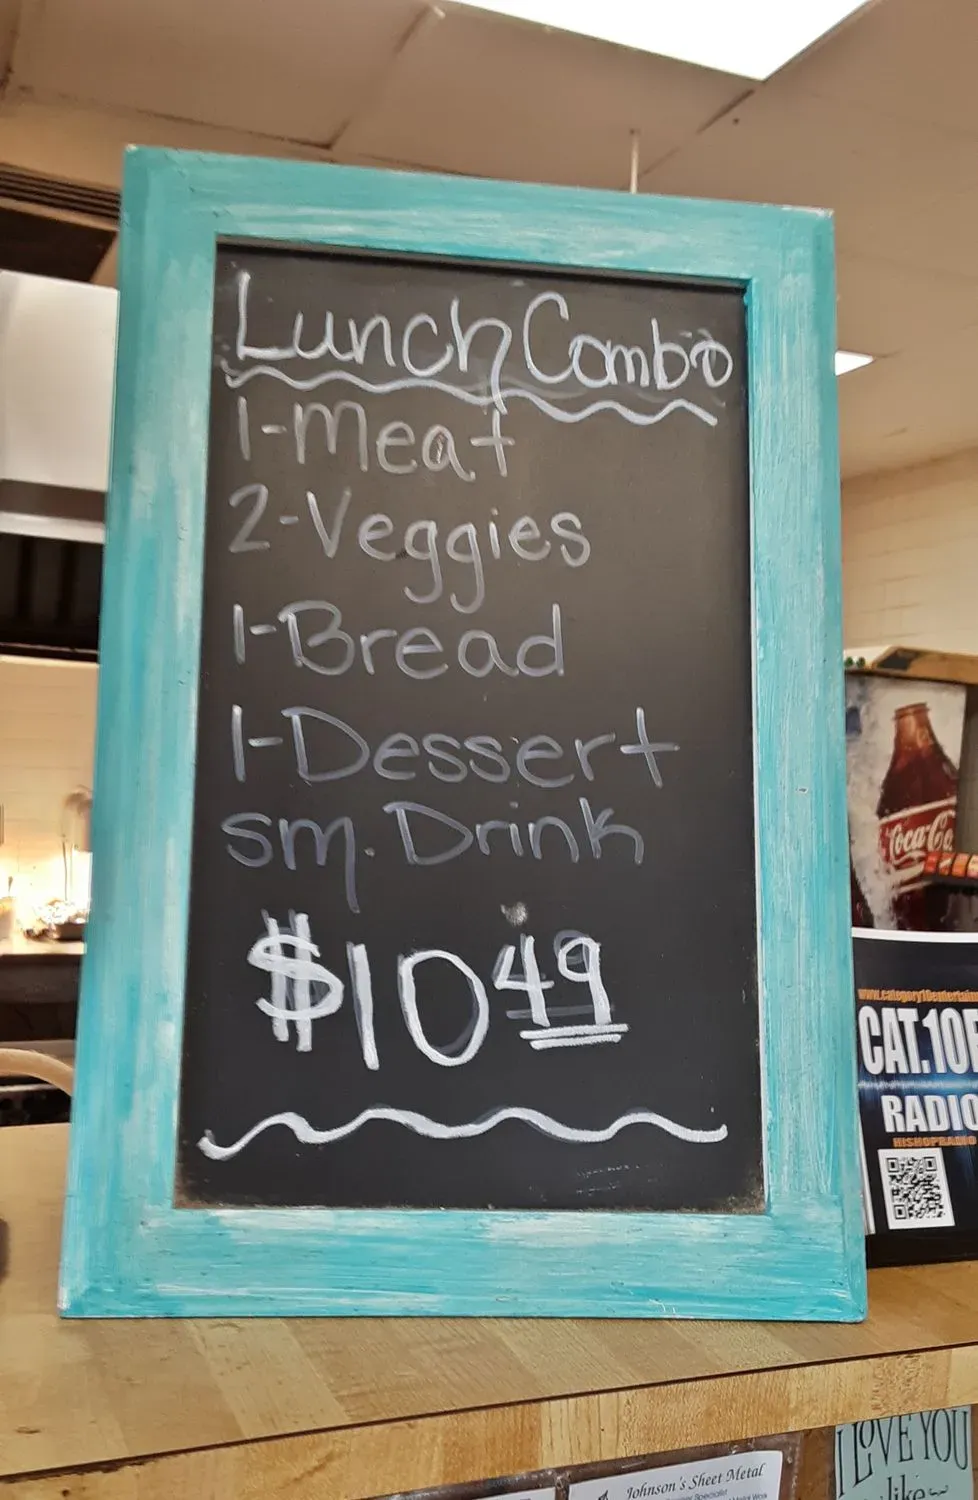 Lunch Combo
1-Meat
2-Veggies
1-Bread
1-Dessert
sm. Drink
$10 49
Coca-Co
www.category10entertain
CAT.10
RADIO
HISHOPRADIO
Johnson's Sheet Metal
Specialist
I LOVE YOU
like